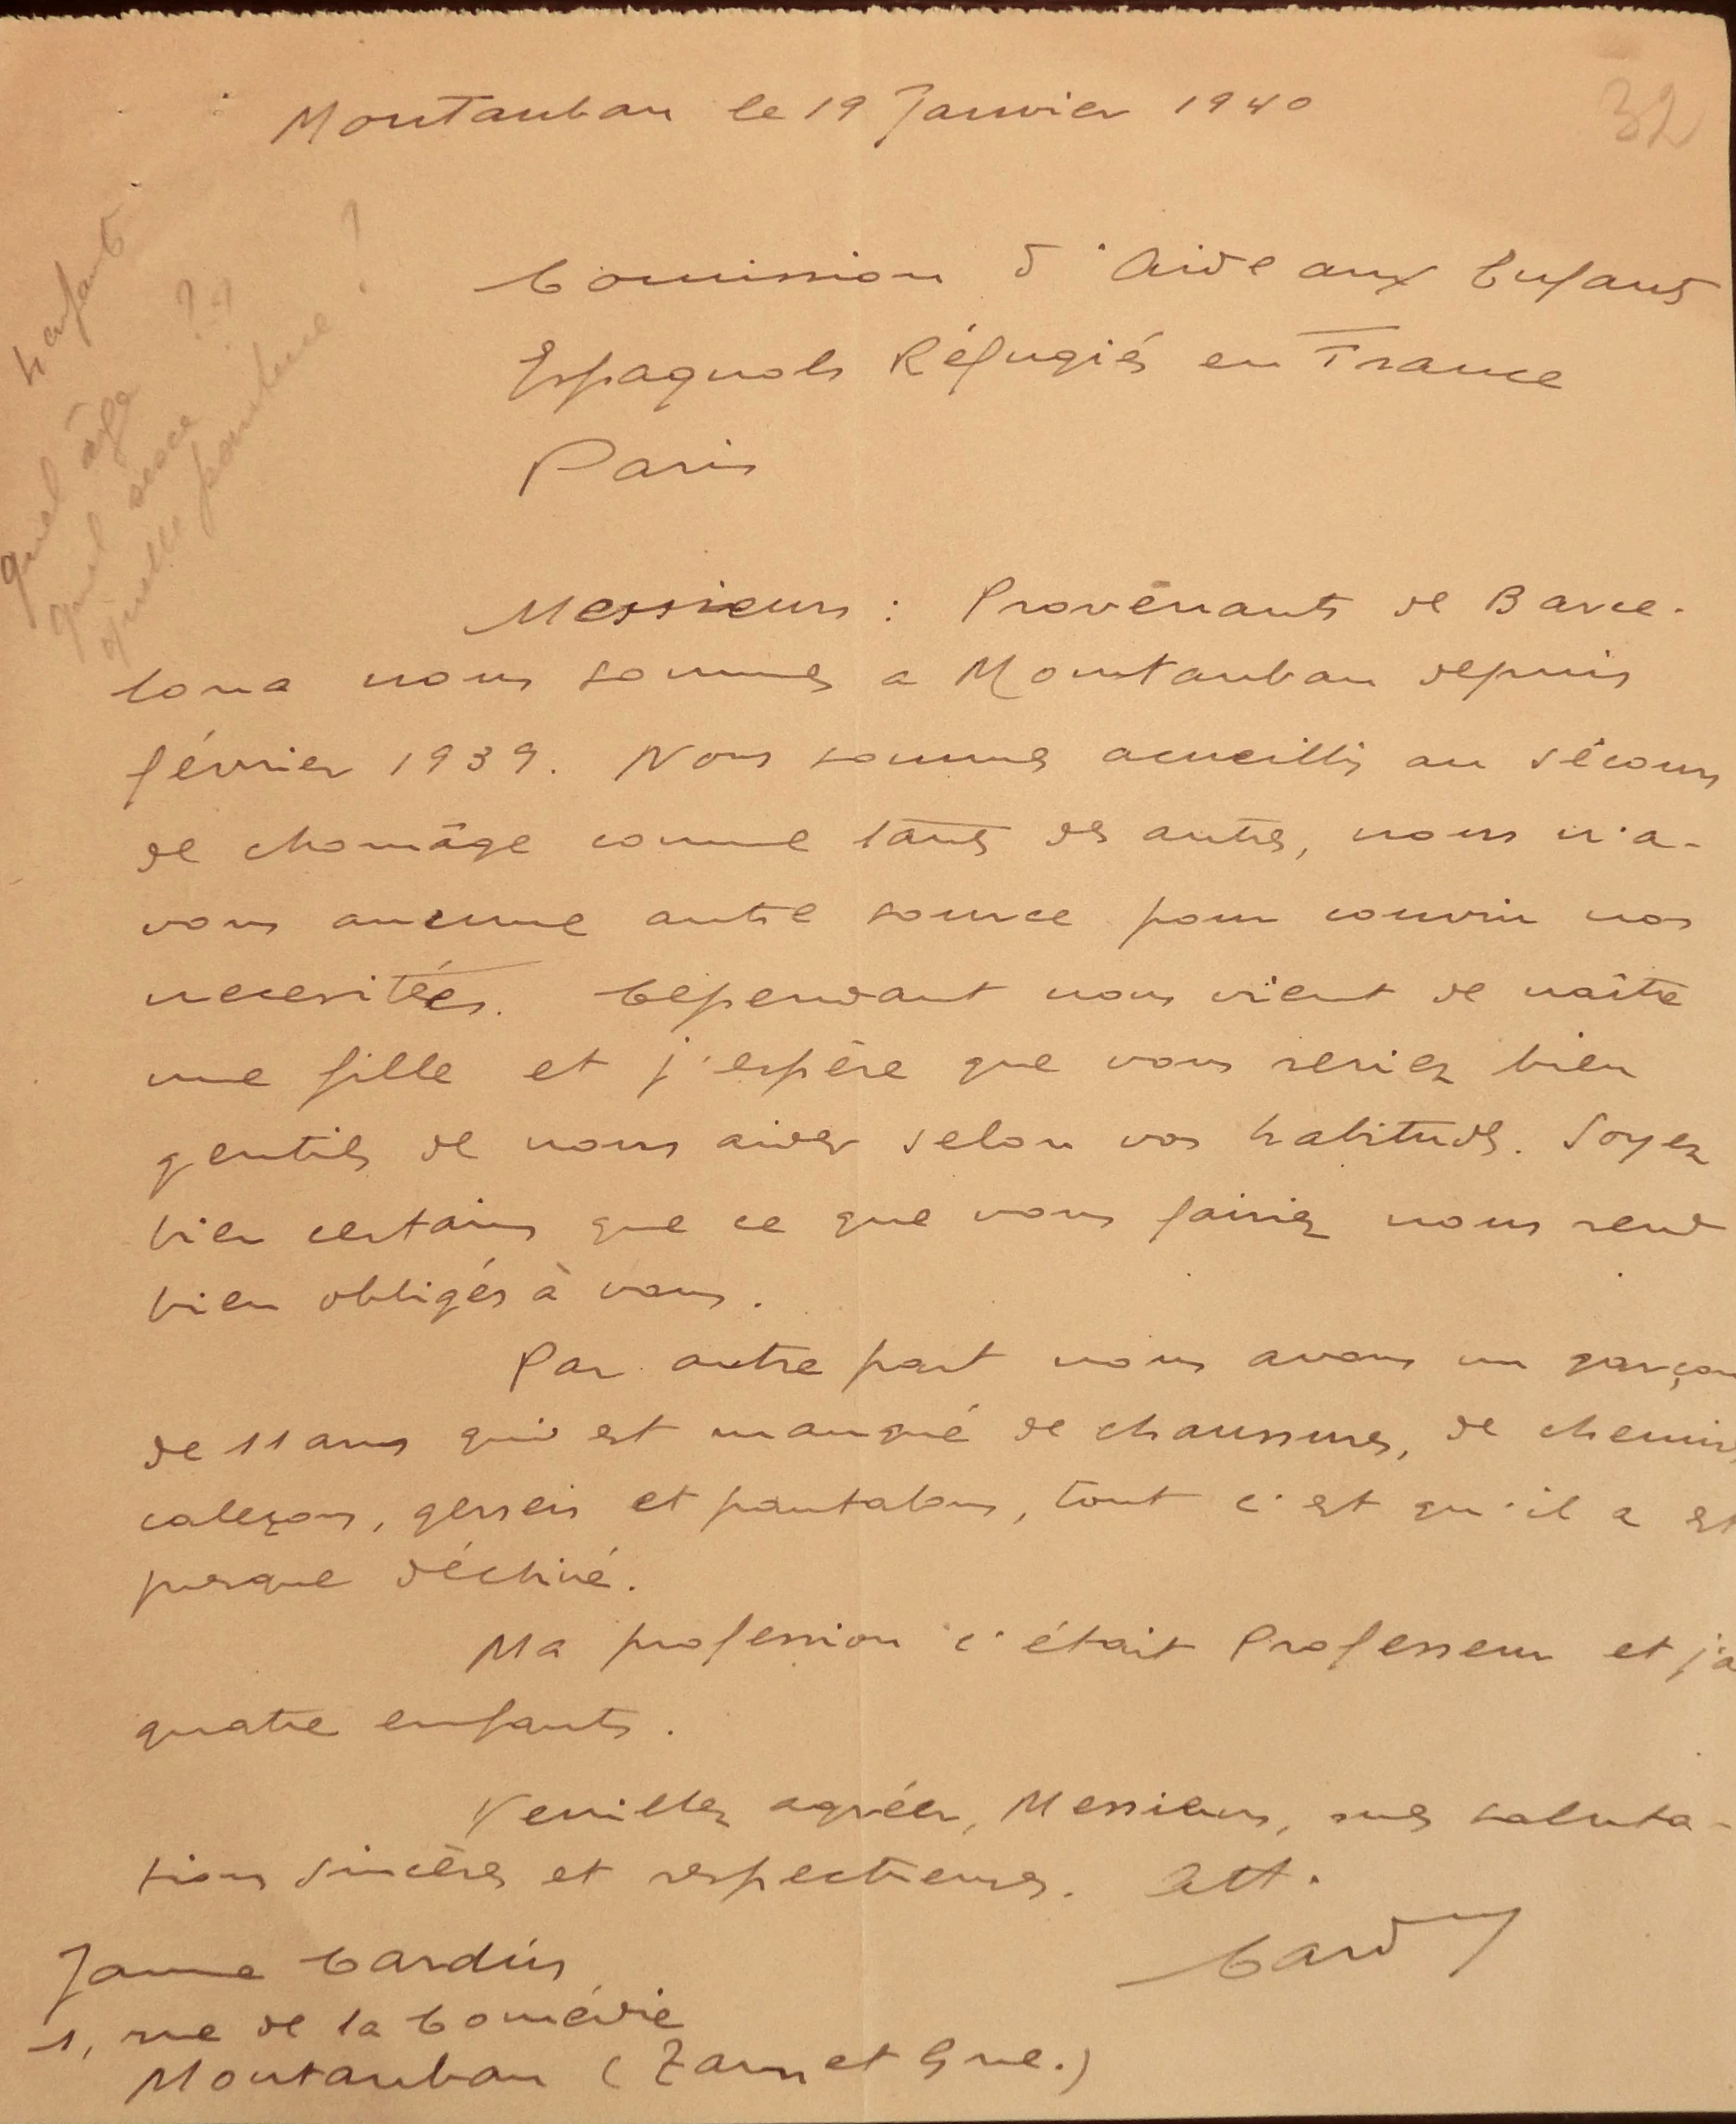 Montauban le 19 Janvier 1940
32
4 enfants
quel âge ?
quel sexe ?
quelle pointure ?
Comission d'Aide aux Enfants
Espagnols Réfugiés en France
Paris
Messieurs : Provenants de Barce-
lona nous sommes a Montauban depuis
février 1939. Nous sommes acueillis au sécours
de chomâge comme tants des autres, nous n'a-
vons aucunne autre source pour couvrir nos
necesitées. Cependant nous vient de naître
une fille et j'espère que vous seriez bien
gentils de nous aider selon vos habitudes. Soyez
bien certains que ce que vous fairiez nous rend
bien obligés à vous.
Par autre part nous avons un garçon
de 11 ans qui est manqué de chaussures, de chemis
caleçons, gerseis et pantalons, tout c'est qu'il a est
presque déchiré.
Ma profession c'était Professeur et j'a
quatre enfants.
Veuillez agréer, Messieurs, mes saluta-
tions sincères et respectieuses. Att.
Jaume Cardús
Card
1, rue de la Comédie
Montauban (Tarn et Gne.)